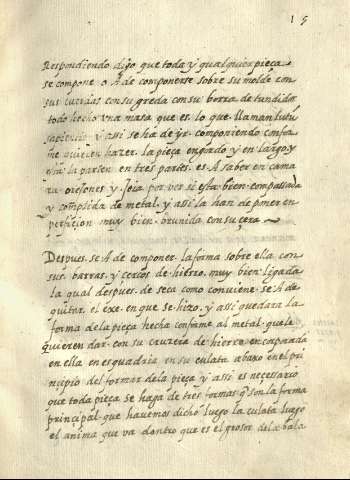 15
Respondiendo digo que toda y qualquier pieça
se compone o A de componerse sobre su molde con
sus cuerdas con su greda con su borra de tundidor
todo hecho una masa que es lo que llaman lutū
sapiencie y assi se ha de yr componiendo confor
me quieren hazer la pieça en gordo y en largo y
en tres partes es A saber en cama
ra orejones y Joia por ver si esta bien compassada
y compsida de metal y assi la han de poner en
perficion muy bien brunida con su çera
Despues se A de componer la forma sobre ella con
sus barras y cercos de hierro muy bien ligada
la qual despues de seca como conviene se A de
quitar el exe en que se hizo y assi quedara la
forma de la pieça hecha conforme al metal que le
quieren dar con su cruzeta de hierro encaparada
en ella en esquadria en su culata abaxo en el prin
cipio del formar de la pieça y assi es necesario
que toda pieça se haga de tres formas q̄ son la forma
principal que havemos dicho luego la culata luego
el anima que va dentro que es el grosor de la bala